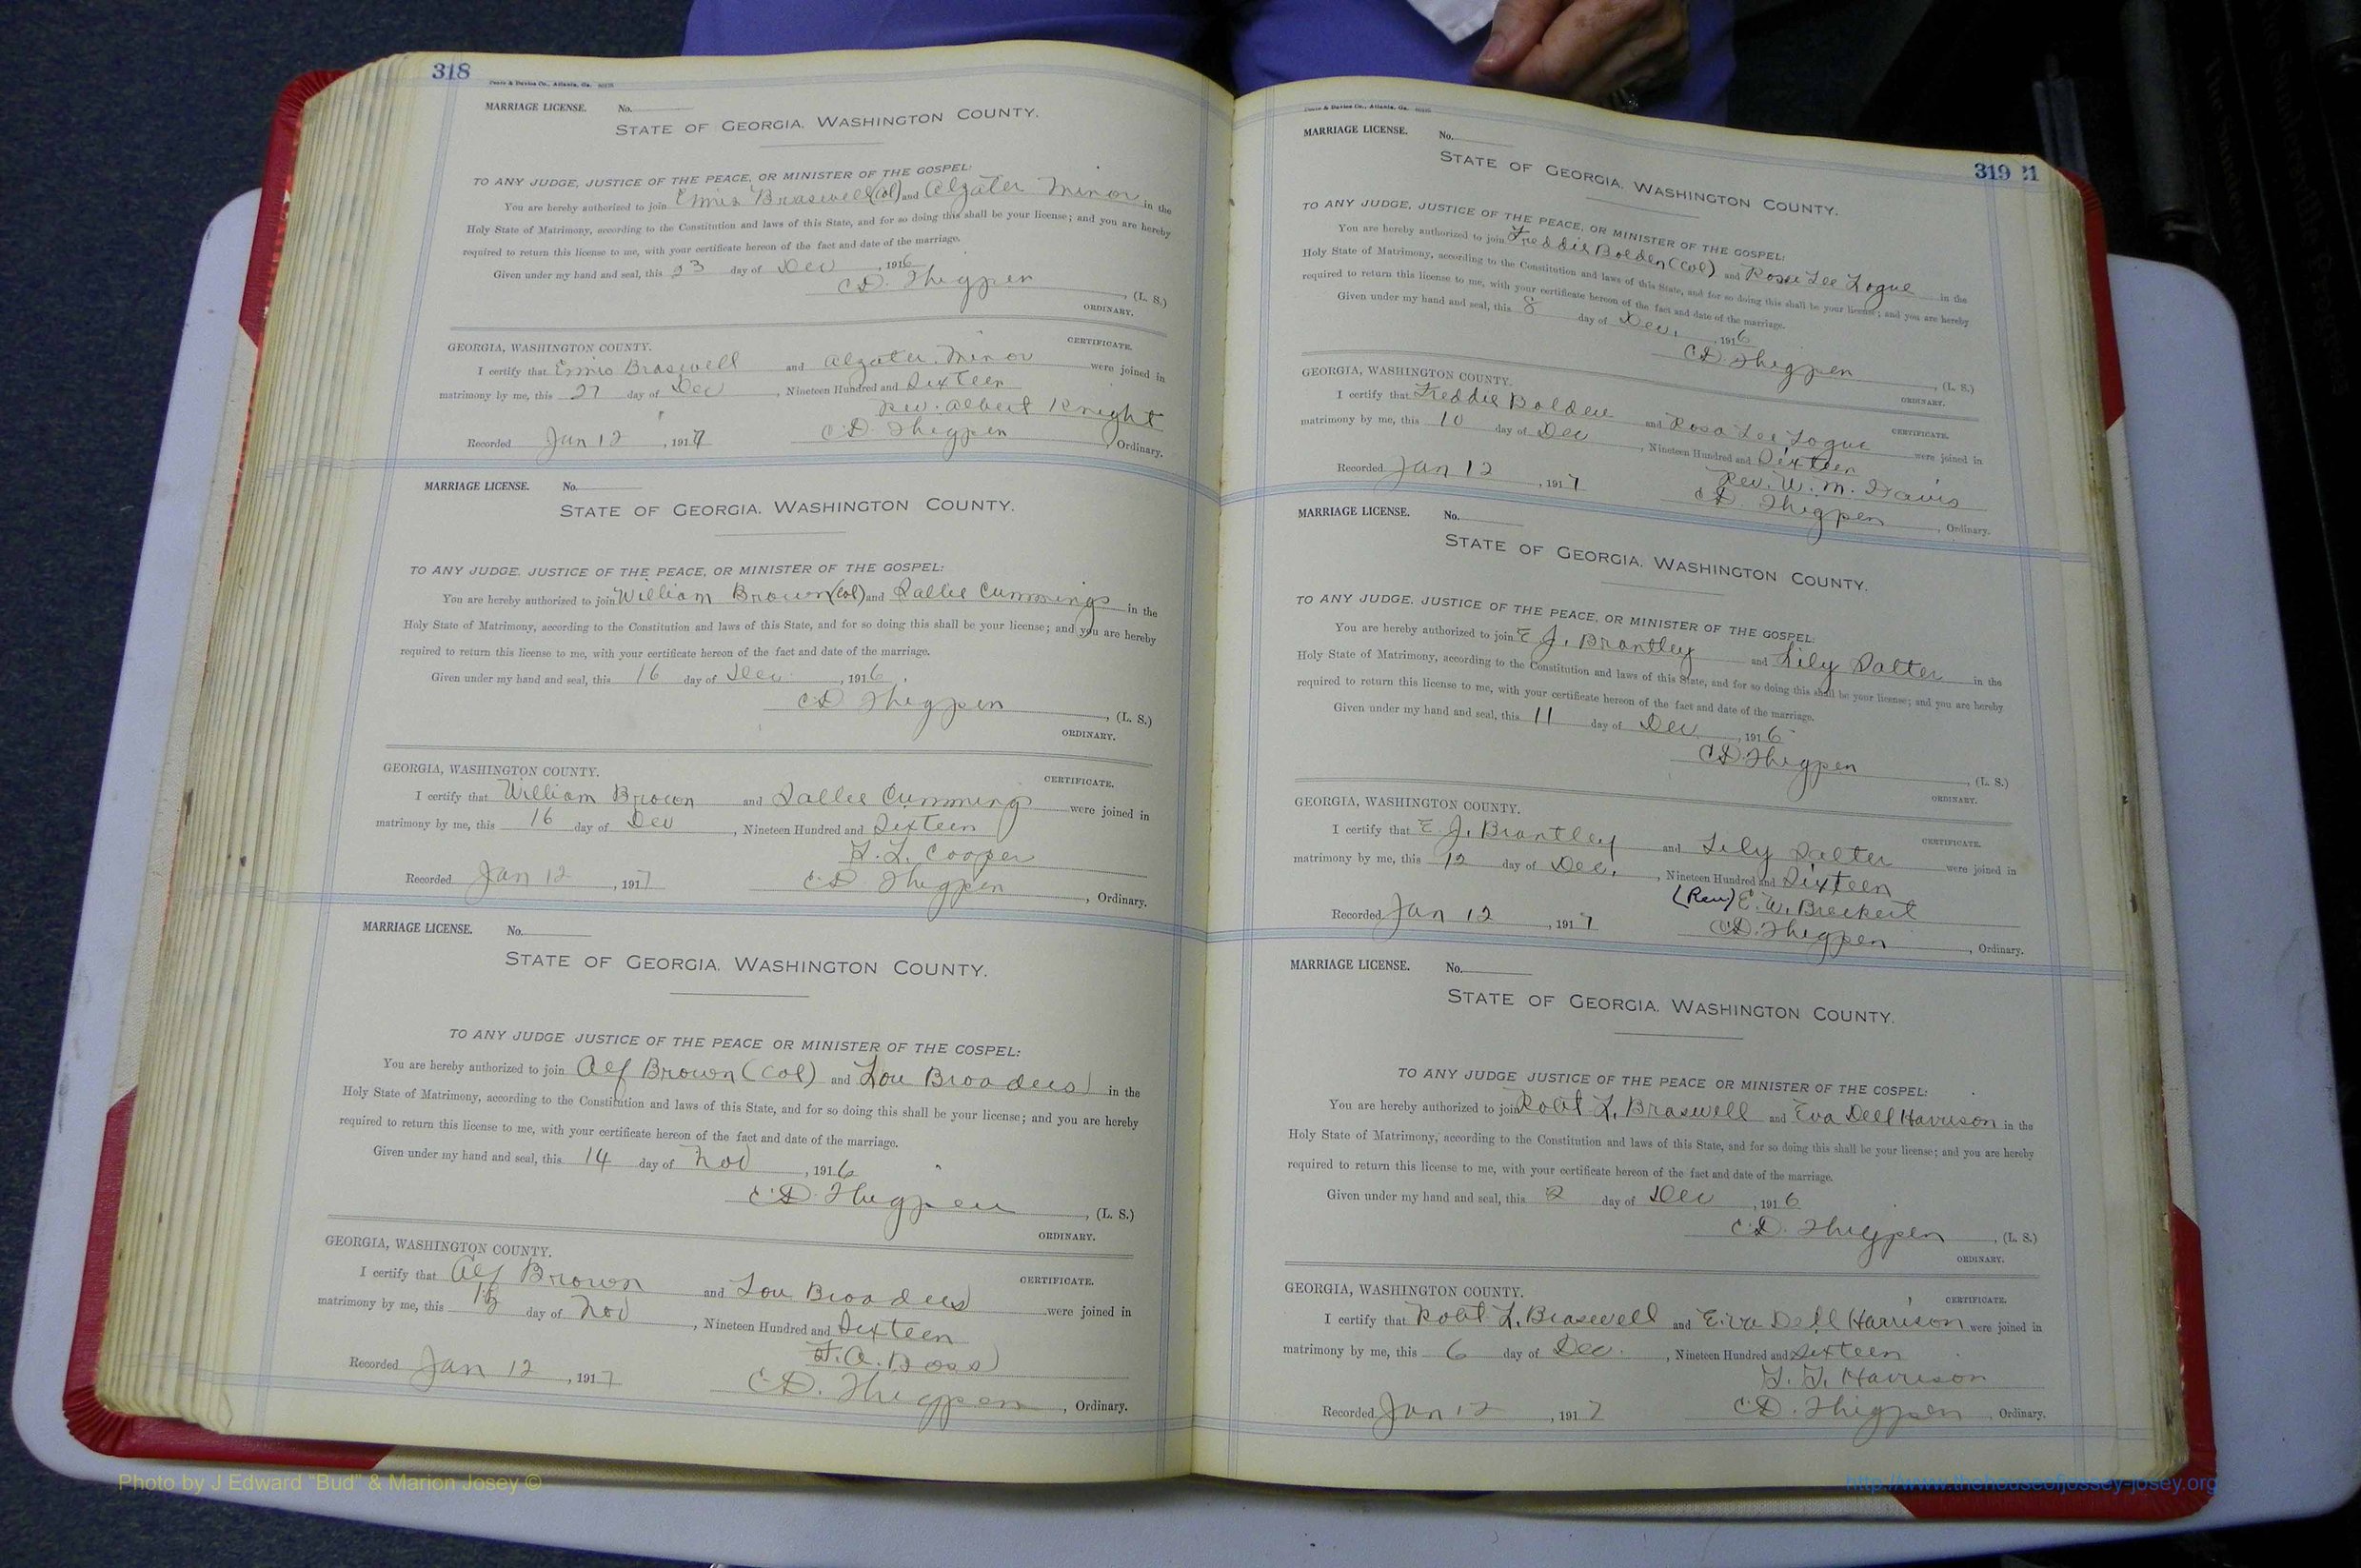 318
MARRIAGE LICENSE. No.
STATE OF GEORGIA, WASHINGTON COUNTY.
TO ANY JUDGE, JUSTICE OF THE PEACE, OR MINISTER OF THE GOSPEL:
You are hereby authorized to join Ennis Braswell (Col) and Algater Minor in the
Holy State of Matrimony, according to the Constitution and laws of this State, and for so doing this shall be your license; and you are hereby
required to return this license to me, with your certificate hereon of the fact and date of the marriage.
Given under my hand and seal, this 23 day of Dec, 1916
C.D. Thigpen (L. S.)
ORDINARY.
CERTIFICATE.
GEORGIA, WASHINGTON COUNTY.
I certify that Ennis Braswell and Algater Minor were joined in
matrimony by me, this 27 day of Dec, Nineteen Hundred and Sixteen
Rev. Albert Knight
Recorded Jan 12, 1917 C.D. Thigpen, Ordinary.
MARRIAGE LICENSE. No.
STATE OF GEORGIA, WASHINGTON COUNTY.
TO ANY JUDGE, JUSTICE OF THE PEACE, OR MINISTER OF THE GOSPEL:
You are hereby authorized to join William Brown (Col) and Sallie Cummings in the
Holy State of Matrimony, according to the Constitution and laws of this State, and for so doing this shall be your license; and you are hereby
required to return this license to me, with your certificate hereon of the fact and date of the marriage.
Given under my hand and seal, this 16 day of Dec, 1916.
C D Thigpen, (L. S.)
ORDINARY.
CERTIFICATE.
GEORGIA, WASHINGTON COUNTY.
I certify that William Brown and Sallie Cummings were joined in
matrimony by me, this 16 day of Dec, Nineteen Hundred and Sixteen
L. L. Cooper
Recorded Jan 12, 1917 C.D. Thigpen, Ordinary.
MARRIAGE LICENSE. No.
STATE OF GEORGIA, WASHINGTON COUNTY.
TO ANY JUDGE JUSTICE OF THE PEACE OR MINISTER OF THE GOSPEL:
You are hereby authorized to join Alf Brown (Col) and Lou Broadus in the
Holy State of Matrimony, according to the Constitution and laws of this State, and for so doing this shall be your license; and you are hereby
required to return this license to me, with your certificate hereon of the fact and date of the marriage.
Given under my hand and seal, this 14 day of Nov, 1916
C.D. Thigpen, (L. S.)
ORDINARY.
CERTIFICATE.
GEORGIA, WASHINGTON COUNTY.
I certify that Alf Brown and Lou Broadus were joined in
matrimony by me, this day of Nov, Nineteen Hundred and Sixteen
A.
Recorded Jan 12, 1917 C.D. Thigpen, Ordinary.
319 21
MARRIAGE LICENSE. No.
STATE OF GEORGIA, WASHINGTON COUNTY.
TO ANY JUDGE, JUSTICE OF THE PEACE, OR MINISTER OF THE GOSPEL:
You are hereby authorized to join Freddie Bolden (Col) and Rosa Lee Logue in the
Holy State of Matrimony, according to the Constitution and laws of this State, and for so doing this shall be your license; and you are hereby
required to return this license to me, with your certificate hereon of the fact and date of the marriage.
Given under my hand and seal, this 8 day of Dec., 1916
C.D. Thigpen, (L. S.)
ORDINARY.
CERTIFICATE.
GEORGIA, WASHINGTON COUNTY.
I certify that Freddie Bolden and Rosa Lee Logue were joined in
matrimony by me, this 10 day of Dec, Nineteen Hundred and Sixteen
Rev. W. M. Davis
Recorded Jan 12, 1917 C.D. Thigpen, Ordinary.
MARRIAGE LICENSE. No.
STATE OF GEORGIA, WASHINGTON COUNTY.
TO ANY JUDGE, JUSTICE OF THE PEACE, OR MINISTER OF THE GOSPEL:
You are hereby authorized to join E J. Brantley and Lily Salter in the
Holy State of Matrimony, according to the Constitution and laws of this State, and for so doing this shall be your license; and you are hereby
required to return this license to me, with your certificate hereon of the fact and date of the marriage.
Given under my hand and seal, this 11 day of Dec, 1916
C.D. Thigpen, (L. S.)
ORDINARY.
CERTIFICATE.
GEORGIA, WASHINGTON COUNTY.
I certify that E J. Brantley and Lily Salter were joined in
matrimony by me, this 12 day of Dec., Nineteen Hundred and Sixteen
(Rev) E. W.
Recorded Jan 12, 1917 C.D. Thigpen, Ordinary.
MARRIAGE LICENSE. No.
STATE OF GEORGIA, WASHINGTON COUNTY.
TO ANY JUDGE JUSTICE OF THE PEACE OR MINISTER OF THE GOSPEL:
You are hereby authorized to join Robt L. Braswell and Eva Dell Harrison in the
Holy State of Matrimony, according to the Constitution and laws of this State, and for so doing this shall be your license; and you are hereby
required to return this license to me, with your certificate hereon of the fact and date of the marriage.
Given under my hand and seal, this 2 day of Dec, 1916
C.D. Thigpen, (L. S.)
ORDINARY.
CERTIFICATE.
GEORGIA, WASHINGTON COUNTY.
I certify that Robt L. Braswell and Eva Dell Harrison were joined in
matrimony by me, this 6 day of Dec., Nineteen Hundred and Sixteen
Harrison
Recorded Jan 12, 1917 C.D. Thigpen, Ordinary.
Photo by J Edward "Bud" & Marion Josey ©
http://www.thehouseofjossey-josey.org